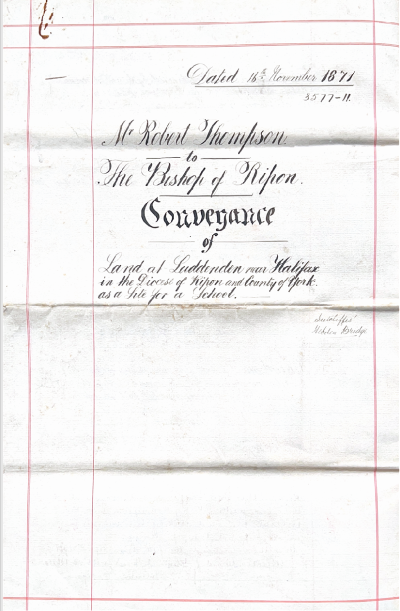 Dated 16th November 1871
3577-11
Mr Robert Thompson
to
The Bishop of Ripon.
Conveyance
of
Land at Luddenden near Halifax
in the Diocese of Ripon and County of York
as a Site for a School.
Hebden Bridge